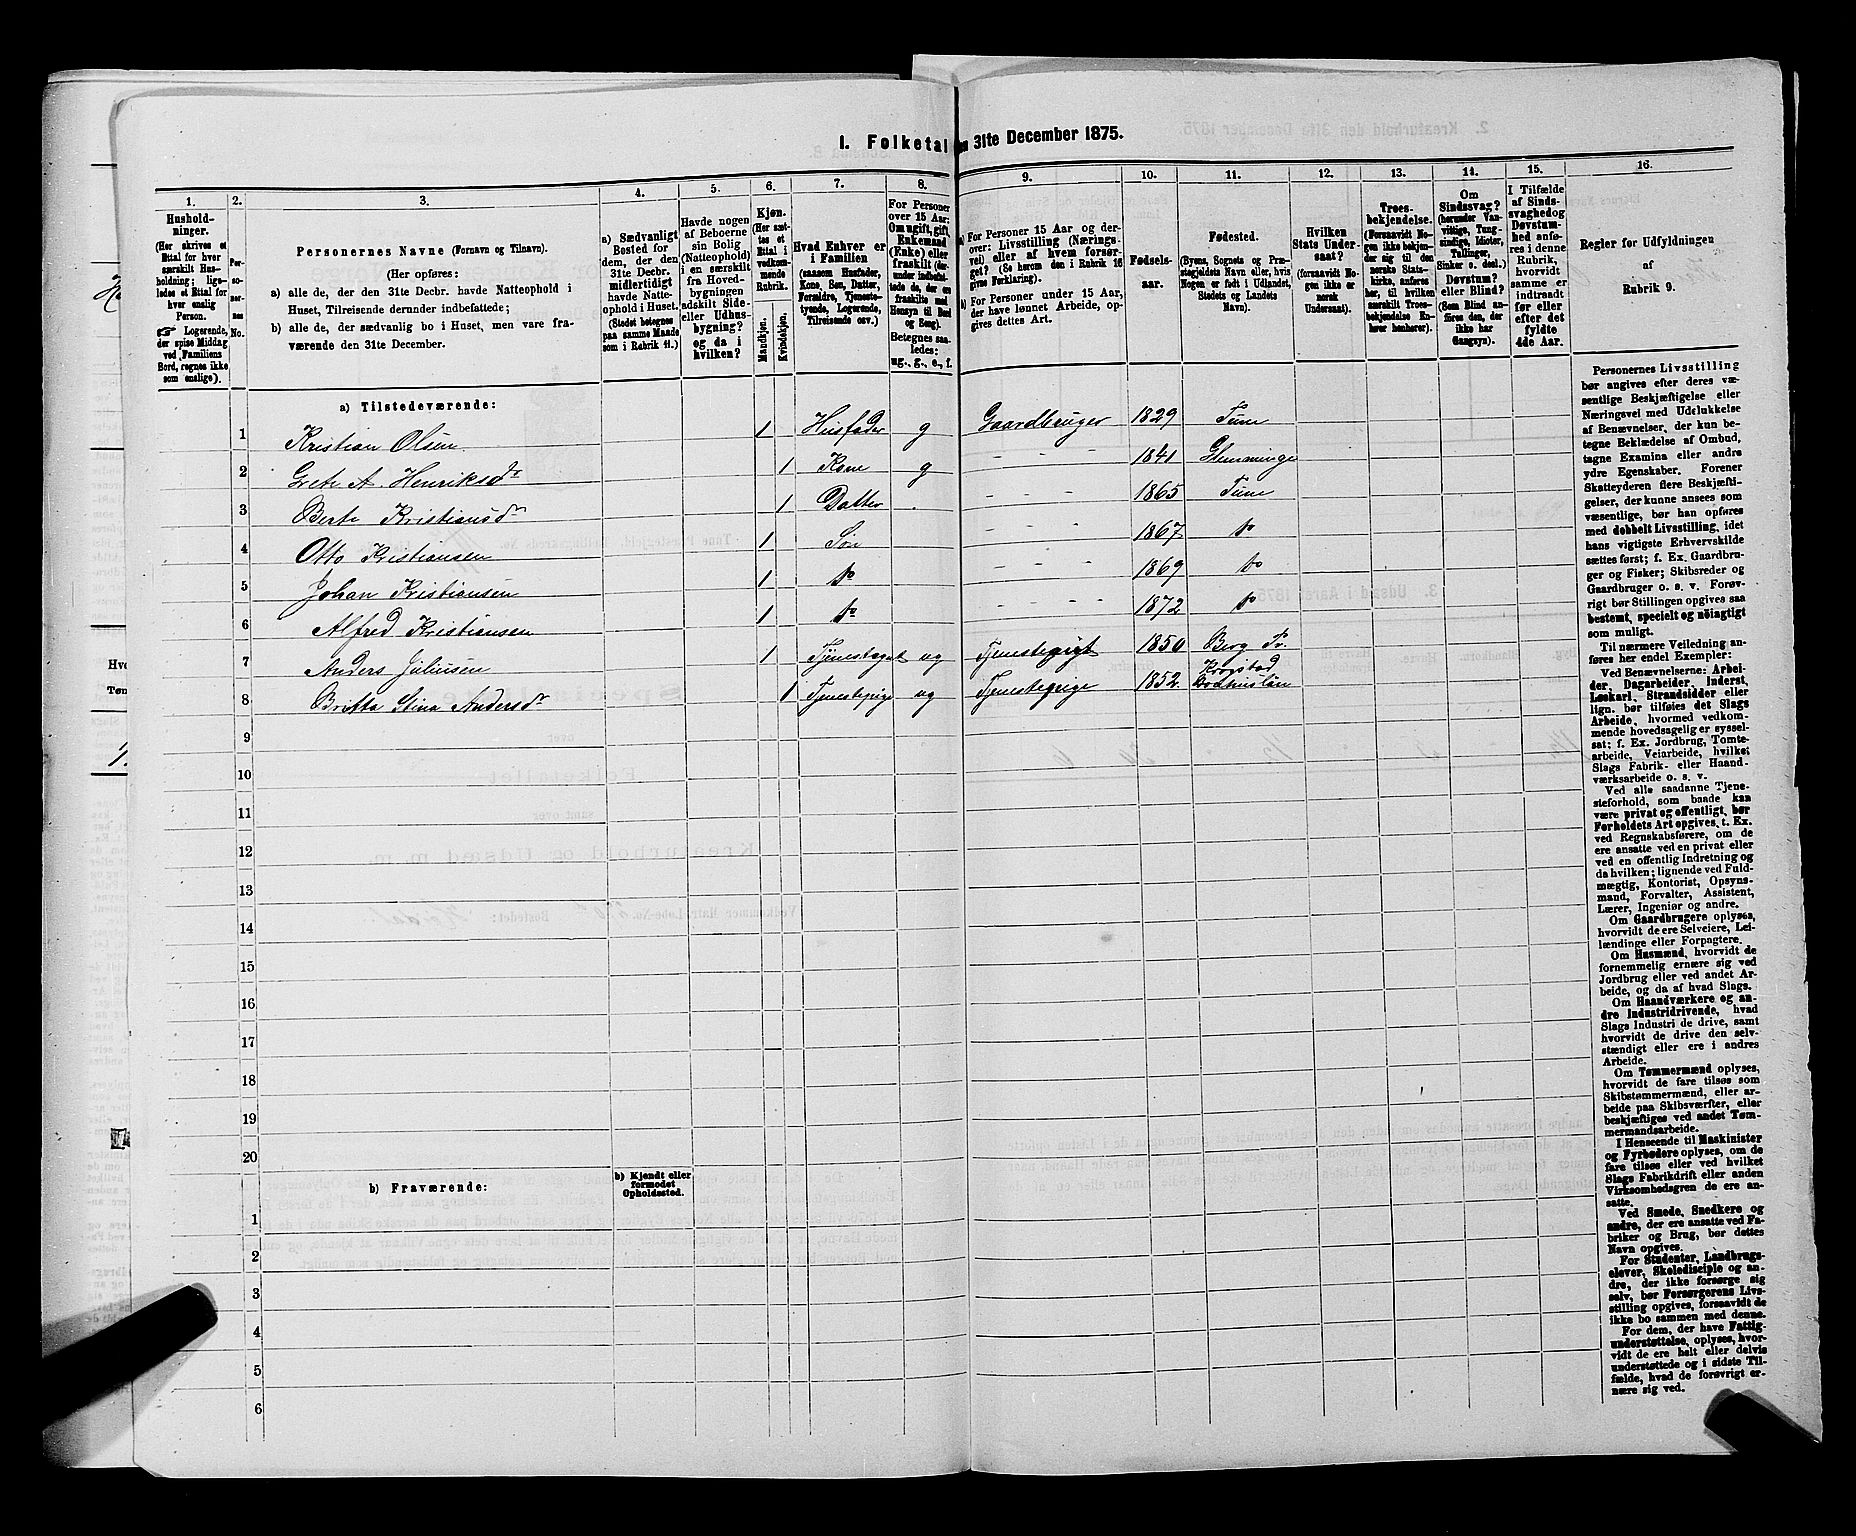 1. Folketal
en 31te December 1875.
1.
Hushold-
ninger.
(Her skrives et
Ettal for hver
særskilt Hus-
holdning; lige-
ledes et Ettal for
hver enslig
Person.
☞ Logerende,
der spise Middag
ved Familiens
Bord, regnes ikke
som enslige).
2.
Per-
so-
ner-
nes
No.
3.
Personernes Navne (Fornavn og Tilnavn).
(Her opføres:
a) alle de, der den 31te Decbr. havde Natteophold i
Huset, Tilreisende derunder indbefattede;
b) alle de, der sædvanlig bo i Huset, men vare fra-
værende den 31te December.
4.
a) Sædvanligt
Bosted for
dem, der den
31te Decbr.
midlertidigt
havde Natte-
ophold i Huset.
(Stedet betegnes
paa samme Maade
som i Rubrik 11.)
5.
Havde nogen
af Beboerne
sin Bolig
(Natteophold)
i en særskilt
fra Hoved-
bygningen
adskilt Side-
eller Udhus-
bygning?
og da i
hvilken?
6.
Kjøn.
(Her sæt-
tes et
Ettal i
vedkom-
mende
Rubrik.
Mandkjøn.
Kvindekjøn.
7.
Hvad Enhver er
i Familien
(saasom Husfader,
Kone, Søn, Datter,
Forældre, Tjeneste-
tyende, Logerende,
Tilreisende osv.)
8.
For Personer
over 15 Aar:
Om ugift, gift,
Enkemand
(Enke) eller
fraskilt (der-
under indbefat-
tede de, der ere
fraskilte med
Hensyn til Bord
og Seng).
Betegnes saa-
ledes:
ug., g., e., f.
9.
a) For Personer 15 Aar og der-
over: Livsstilling (Nærings-
vei) eller af hvem forsør-
get? (Se herom den i Rubrik 16
givne Forklaring).
b) For Personer under 15 Aar,
der have lønnet Arbeide, op-
gives dettes Art.
10.
Fødsels-
aar.
11.
Fødested.
(Byens, Sognets og Præ-
stegjeldets Navn eller, hvis
Nogen er født i Udlandet,
Stedets og Landets
Navn).
12.
Hvilken
Stats Under-
saat?
(forsaavidt No-
gen ikke er
norsk
Undersaat).
13.
Troes-
bekjendelse.
(Forsaavidt No-
gen ikke bekjen-
der sig til den
norske Stats-
kirke, anføres
her, til hvilken
særskilt Troes-
bekjendelse En-
hver henhører).
14.
Om
Sindssvag?
(herunder Van-
vittige, Tung-
sindige, Idioter,
Tullinger,
Sinker o. desl.)
Døvstum?
eller Blind?
(Som Blind an-
føres den, der
ikke har
Gangsyn).
15.
I Tilfælde
af Sinds-
svaghed og
Døvstum-
hed anfø-
res i denne
Rubrik,
hvorvidt
samme er
indtraadt
før eller
efter det
fyldte
4de Aar.
16.
Regler for Udfyldningen
af
Rubrik 9.
a) Tilstedeværende:
1 Kristian Olsen 1 Husfader g Gaardbruger 1829 Tune
2 Grete A. Henriksdr 1 Kone g - - - 1841 Glemminge
3 Berte Kristiansdr 1 Datter . - - - 1865 Tune
4 Otto Kristiansen 1 Søn - - - 1867 do
5 Johan Kristiansen 1 do - - - 1869 do
6 Alfred Kristiansen 1 do - - - 1872 do
7 Anders Juliusen 1 ug 1850 Berg Pr.
8 Britta Stina Andersdr 1 Tjenestepige ug Tjenestepige 1852
9
10
11
12
13
14
15
16
17
18
19
20
b) Fraværende:
b) Kjendt eller
formodet
Opholdssted.
1
2
3
4
5
6
Personernes Livsstilling
bør angives efter deres væ-
sentlige Beskjæftigelse eller
Næringsvei med Udelukkelse
af Benævnelser, der kun be-
tegne Beklædelse af Ombud,
tagne Examina eller andre
ydre Egenskaber. Forener
Skatteyderen flere Beskjæfti-
gelser, der kunne ansees som
væsentlige, bør han opføres
med dobbelt Livsstilling, idet
hans vigtigste Erhvervskilde
sættes først; f. Ex. Gaardbru-
ger og Fisker; Skibsreder og
Gaardbruger o. s. v. Forøv-
rigt bør Stillingen opgives saa
bestemt, specielt og nøiagtigt
som muligt.
Til nærmere Veiledning an-
føres her endel Exempler:
Ved Benævnelserne: Arbei-
der, Dagarbeider, Inderst,
Løskarl, Strandsidder eller
lign. bør tilføies det Slags
Arbeide, hvormed vedkom-
mende hovedsagelig er syssel-
sat; f. Ex. Jordbrug, Tomte-
arbeide, Veiarbeide, hvilket
Slags Fabrik- eller Haand-
værksarbeide o. s. v.
Ved alle saadanne Tjene-
steforhold, som baade kan
være privat og offentligt, bør
Forholdets Art opgives, t. Ex.
ved Regnskabsførere, om de
ere ansatte ved en privat eller
ved en offentlig Indretning og
da hvilken; lignende ved Fuld-
mægtig, Kontorist, Opsyns-
mand, Forvalter, Assistent,
Lærer, Ingeniør og andre.
Om Gaardbrugere oplyses,
hvorvidt de ere Selveiere, Lei-
lændinge eller Forpagtere.
Om Husmænd, hvorvidt de
fornemmelig ernære sig ved
Jordbrug eller ved andet Ar-
beide, og da af hvad Slags.
Om Haandværkere og an-
dre Industridrivende, hvad
Slags Industri de drive, samt
hvorvidt de drive den selv-
stændigt eller ere i andres
Arbeide.
Om Tømmermænd oplyses,
hvorvidt de fare tilsøs som
Skibstømmermænd, eller ar-
beide paa Skibsværfter, eller
beskjæftiges ved andet Tøm-
mermandsarbeide.
I Henseende til Maskinister
og Fyrbødere oplyses, om de
fare tilsøs eller ved hvilket
Slags Fabrikdrift eller anden
Virksomhedsgren de ere an-
satte.
Ved Smede, Snedkere og
andre, der ere ansatte ved Fa-
briker og Brug, bør dettes
Navn opgives.
For Studenter, Landbrugs-
elever, Skoledisciple og an-
dre, der ikke forsørge sig
selv, bør Forsørgerens Livs-
stilling opgives, forsaavidt de
ikke bo sammen med denne.
For dem, der have Fattig-
understøttelse, oplyses, hvor-
vidt de ere helt eller delvis
understøttede og i sidste Til-
fælde, hvad de forøvrigt er-
nære sig ved.